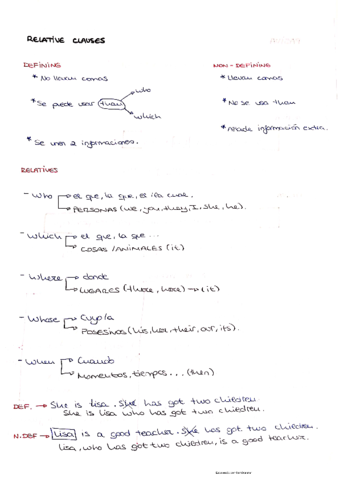 RELATIVE CLAUSES
DEFINING
* No llevan comas
* Se puede usar than
who
which
* Se unen 2 informaciones.
NON-DEFINING
* llevan comas
* No se usa than
* Añade información extra.
RELATIVES
- Who → el que, la que, el / la cual.
→ PERSONAS (we, you, they, I, she, he).
- Which → el que, la que ...
→ COSAS / ANIMALES (it)
- Where → donde
→ LUGARES (there, here) → (it)
- Whose → Cuyo/a
→ Posesivos (his, her, their, our, its).
- When → Cuando
→ Momentos, tiempos... (then)
DEF. → She is Lisa. She has got two children.
She is Lisa who has got two children.
N.DEF → Lisa is a good teacher. She has got two children.
Lisa, who has got two children, is a good teacher.